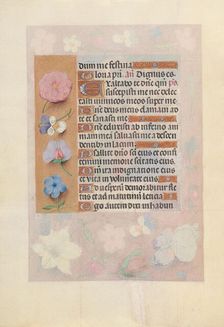 dium me festina
Gloria pri. An. Dignus es
Exaltabo te domine quoniam
suscepisti me nec delec
tasti inimicos meos super me
Domine deus meus clamavi ad
te et sanasti me
Domine eduxisti ab inferno ani
mam meam salvasti me a descen
dentibus in lacum
Psallite domino sancti eius et confite
mini memorie sanctitatis eius
Quoniam ira in indignatione eius
et vita in voluntate eius
Ad vesperum demorabitur fle
tus et ad matutinum leticia
Ego autem dixi in habun